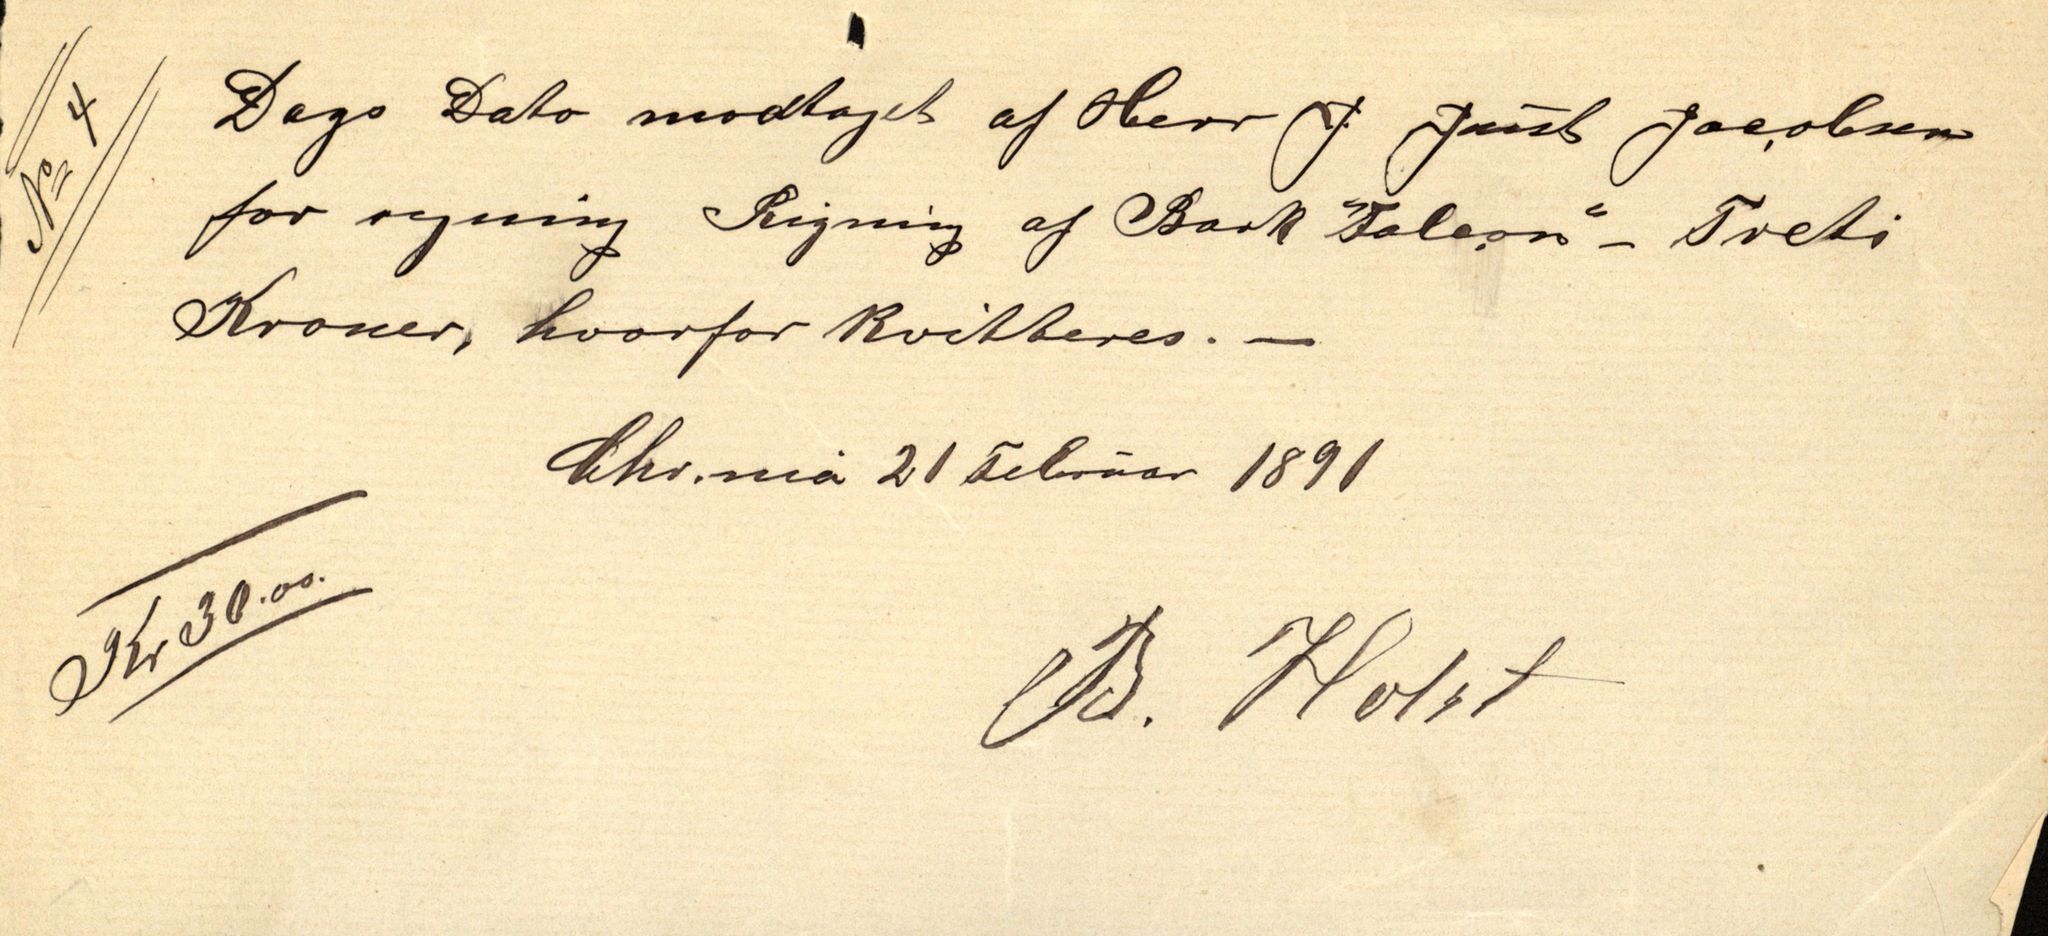 No 4
Dags Dato modtaget af Herr J. Just Jacobsen
for Rigning af Bark "Falcon" – Treti
Kroner, hvorfor kvitteres. –
Chr.nia 21 Februar 1891
Kr 30.00.
B. Holst